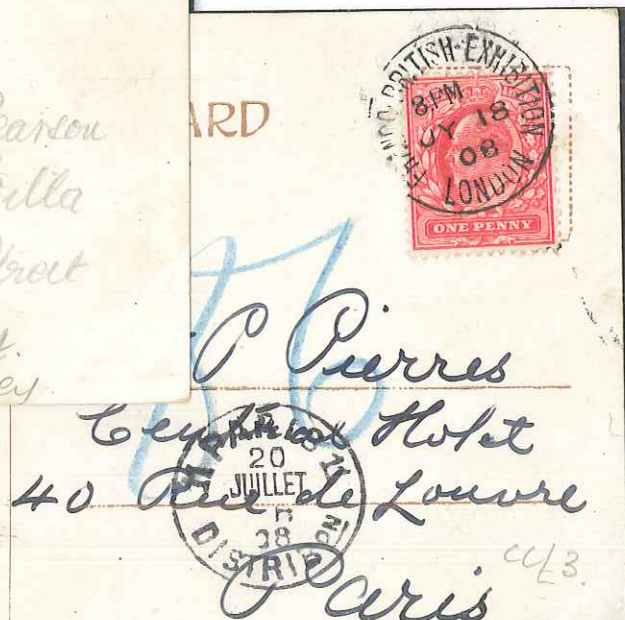 arson
illa
ARD
FRANCO-BRITISH-EXHIBITION
8 PM
JY 18
08
LONDON
ONE PENNY
P Pierres
Central Hotel
40 Rue de Louvre
Paris
PARIS
20
JUILLET
08
DISTRIBON